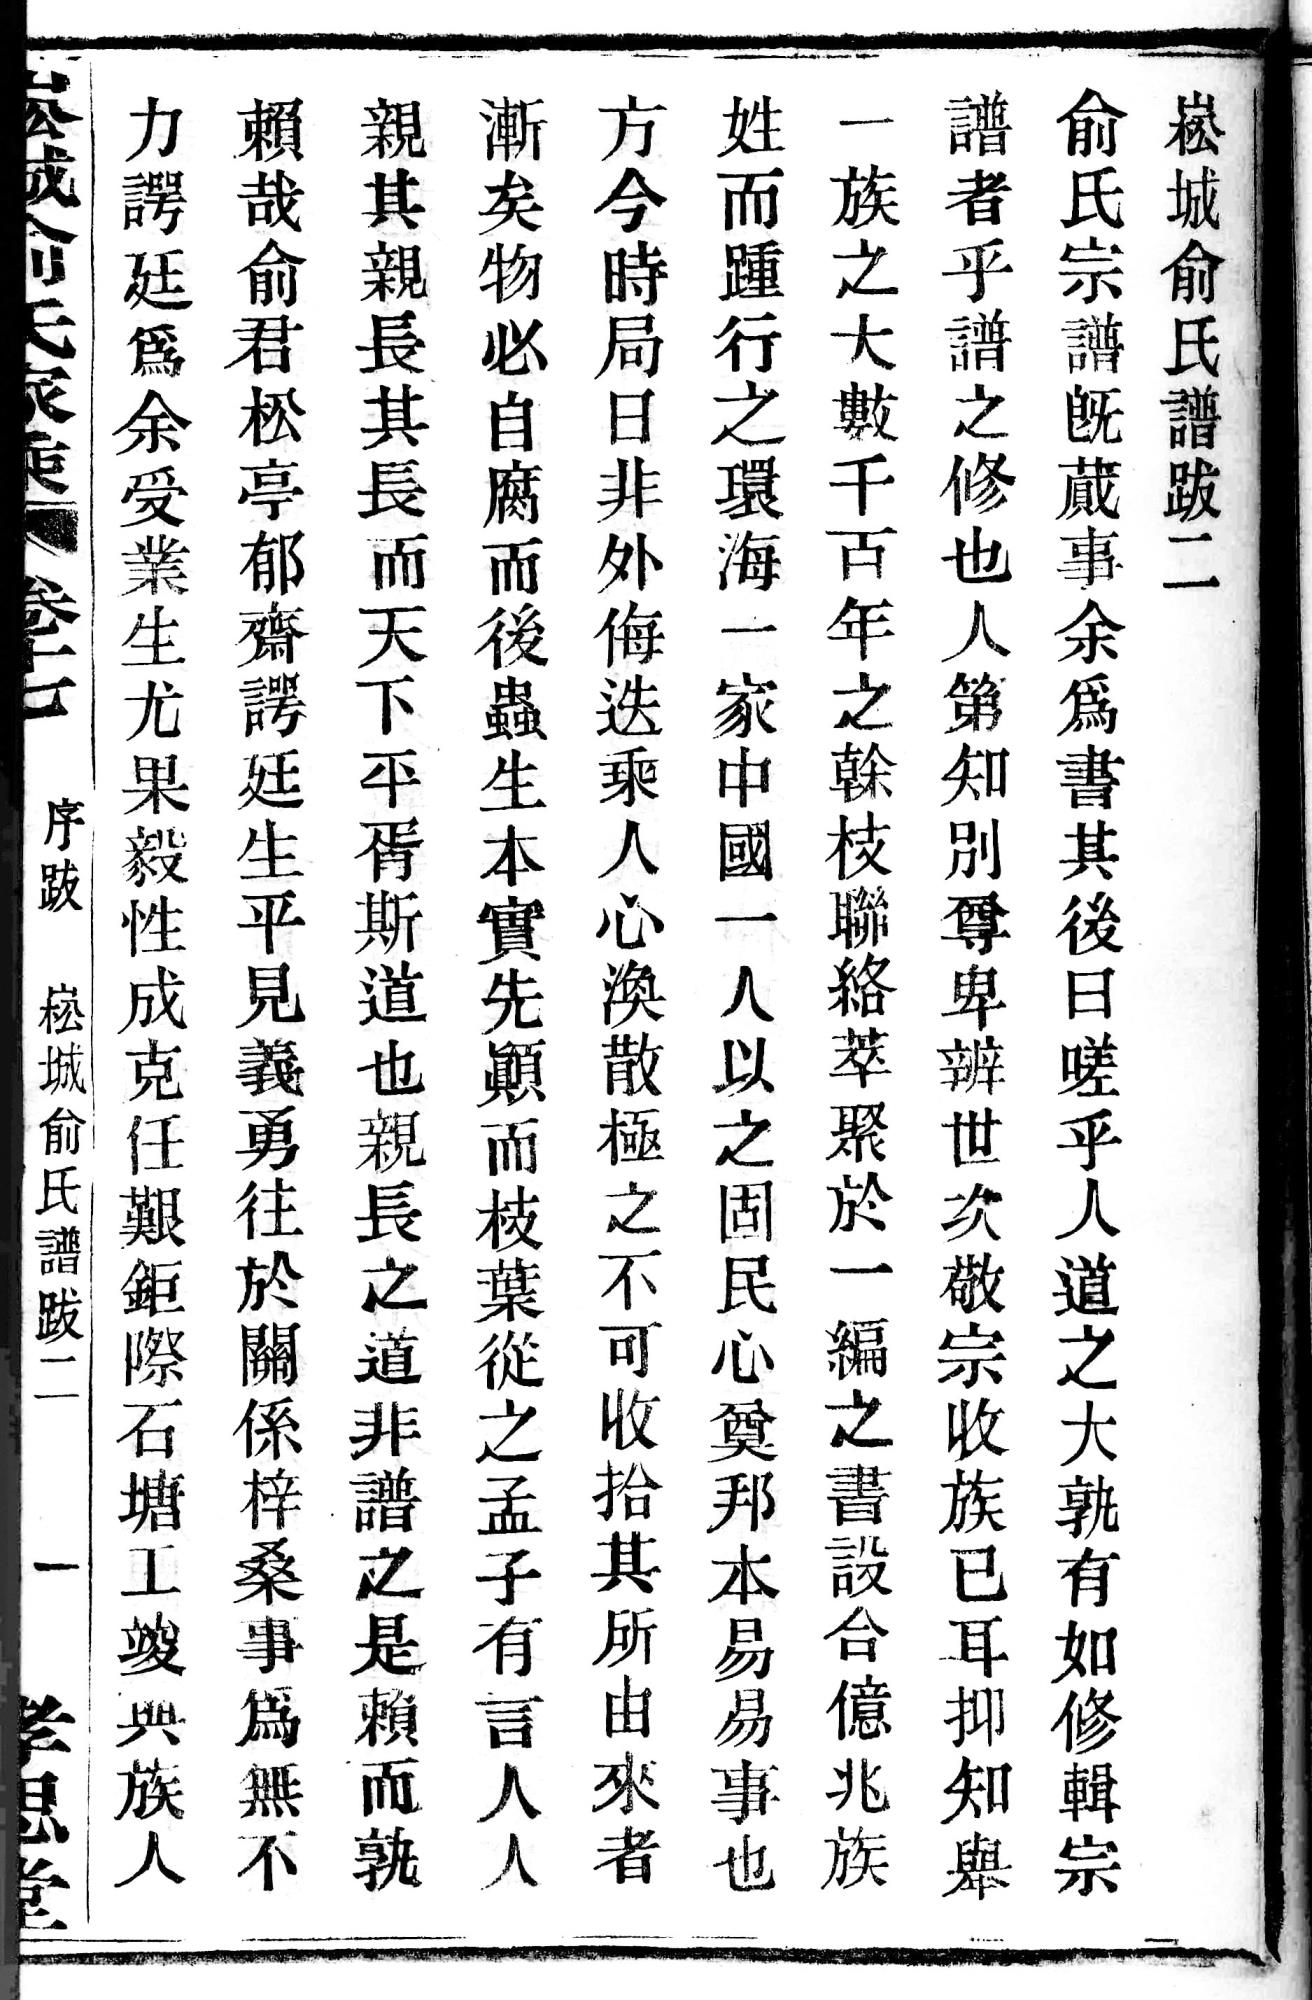 崧城俞氏譜跋二
俞氏宗譜旣蕆事余爲書其後曰嗟乎人道之大孰有如修輯宗
譜者乎譜之修也人第知別尊卑辨世次敬宗收族已耳抑知舉
一族之大數千百年之榦枝聯絡萃聚於一編之書設合億兆族
姓而踵行之環海一家中國一人以之固民心奠邦本易易事也
方今時局日非外侮迭乘人心渙散極之不可收拾其所由來者
漸矣物必自腐而後蟲生本實先顚而枝葉從之孟子有言人人
親其親長其長而天下平胥斯道也親長之道非譜之是賴而孰
賴哉俞君松亭郁齋諤廷生平見義勇往於關係梓桑事爲無不
力諤廷爲余受業生尤果毅性成克任艱鉅際石塘工竣與族人
崧城俞氏家乘 卷十七 序跋 崧城俞氏譜跋二 一 孝思堂